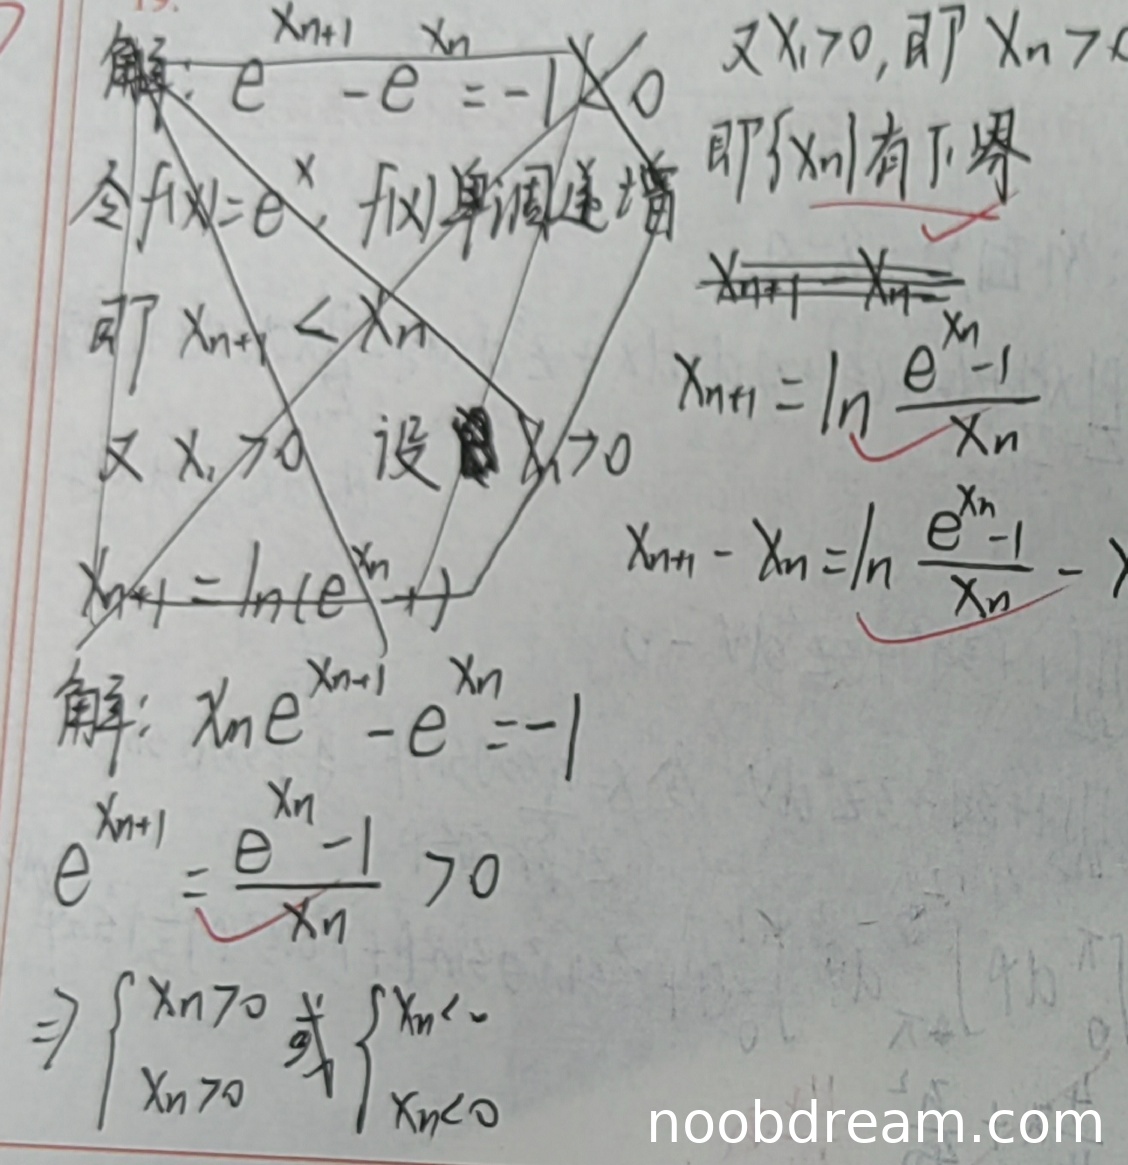 解: e^{x_{n+1}} - e^{x_n} = -1 < 0
令f(x)=e^x, f(x)单调递增
即 x_{n+1} < x_n
又 x_1 > 0 设 x_n > 0
x_{n+1} = ln(e^{x_n} + )
解: x_n e^{x_{n+1}} - e^{x_n} = -1
e^{x_{n+1}} = \frac{e^{x_n} - 1}{x_n} > 0
⇒ { x_n > 0 或 { x_n < 0
x_n > 0 x_n < 0
又 x_1 > 0, 即 x_n > 0
即{x_n}有下界
x_{n+1} - x_n =
x_{n+1} = ln \frac{e^{x_n} - 1}{x_n}
x_{n+1} - x_n = ln \frac{e^{x_n} - 1}{x_n} - x
noobdream.com